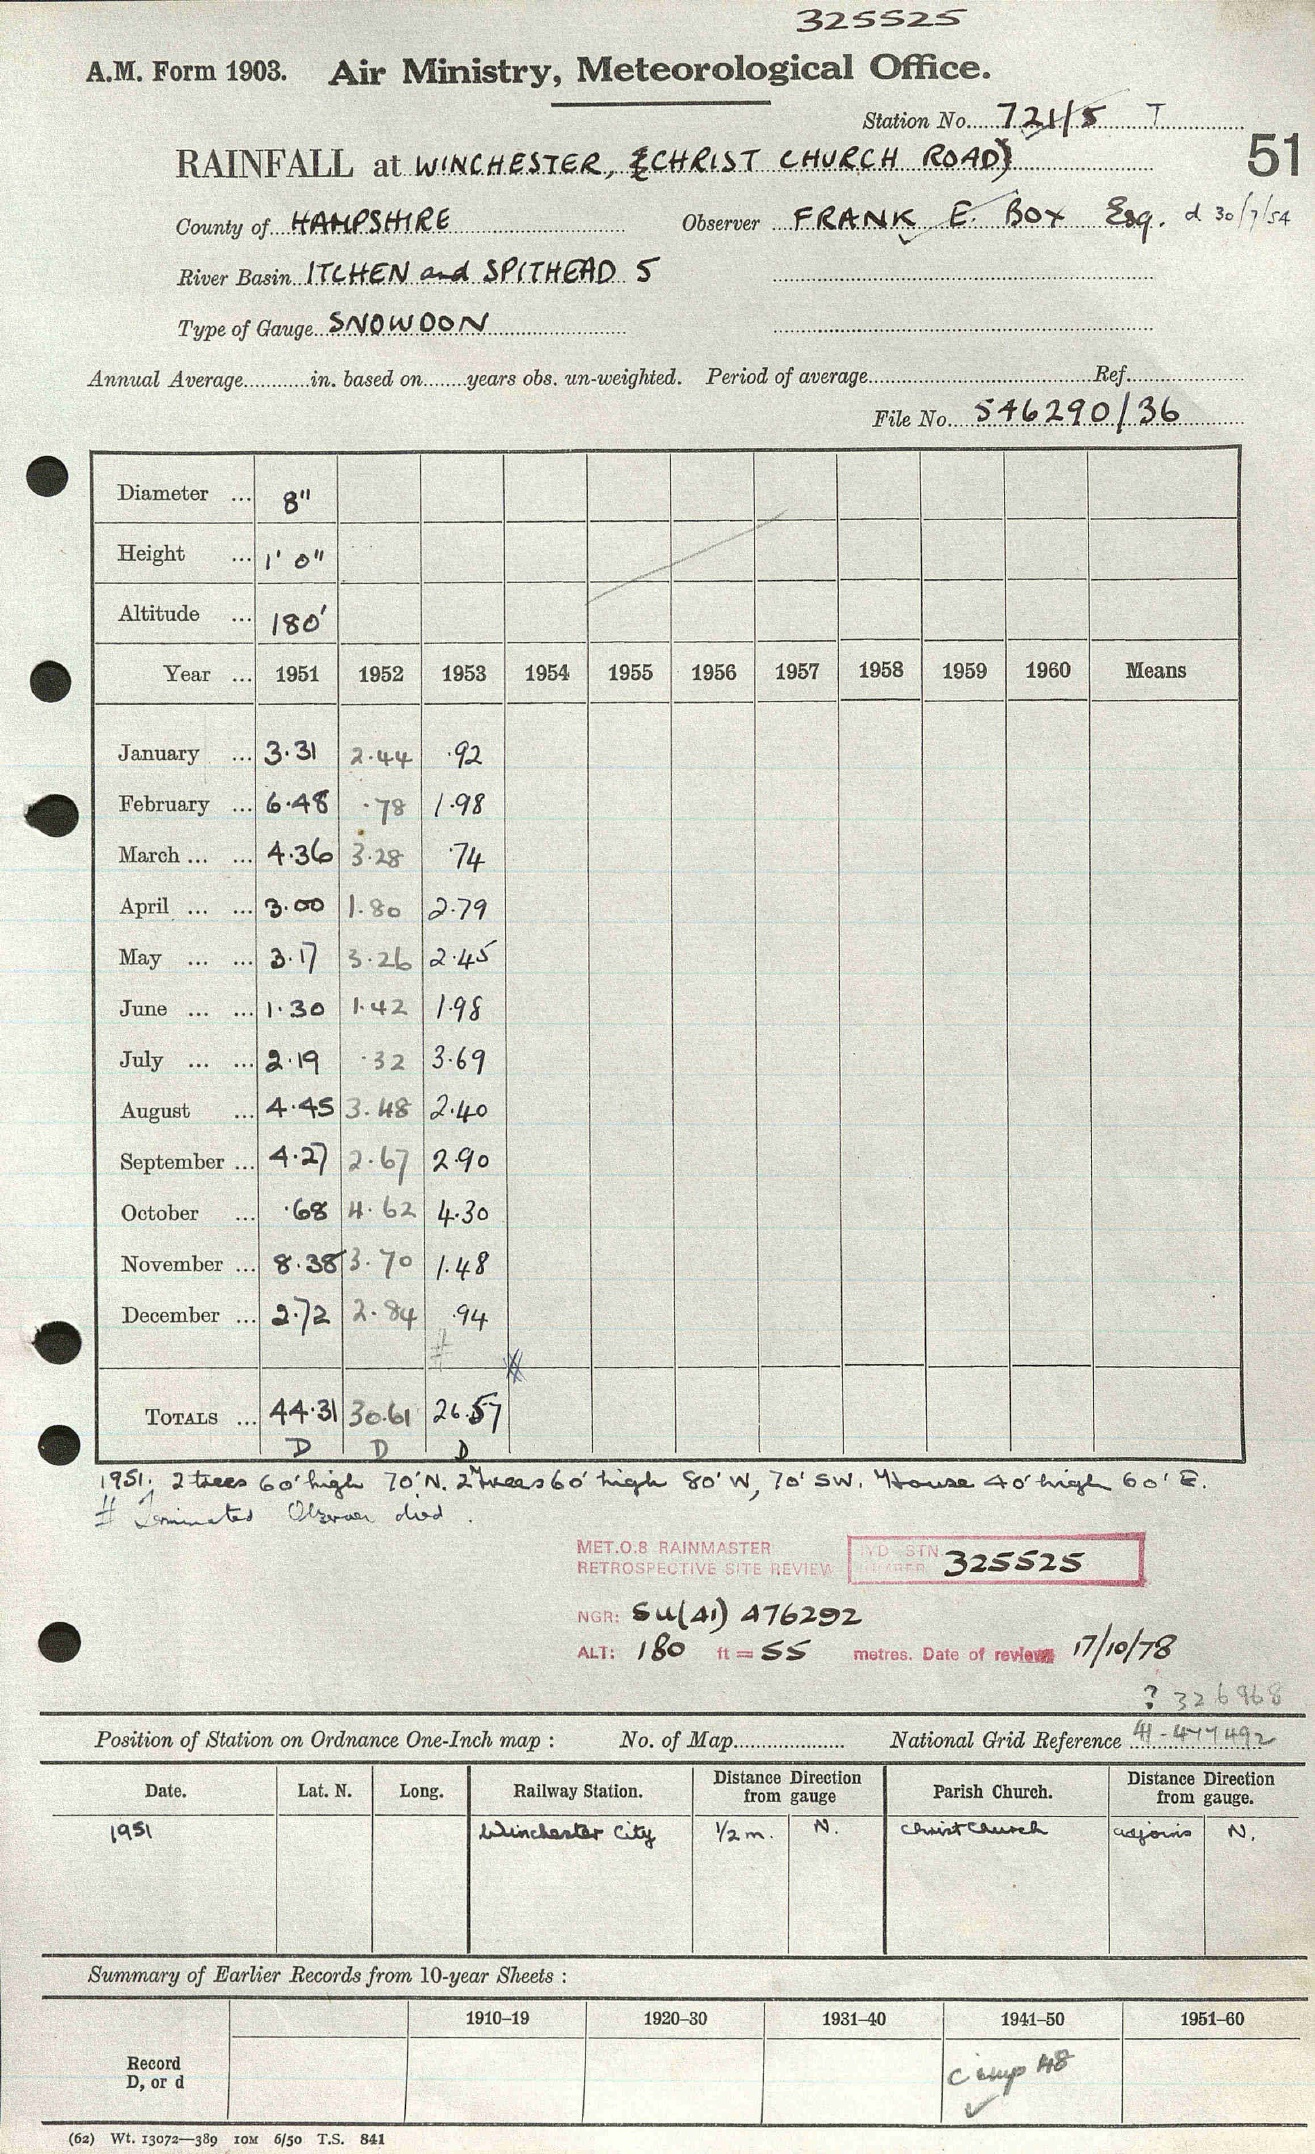 325525
A.M. Form 1903. Air Ministry, Meteorological Office.
Station No. 721/5 T
51
RAINFALL at WINCHESTER, (CHRIST CHURCH ROAD)
County of HAMPSHIRE Observer FRANK E. BOX Esq. d 30/7/54
River Basin ITCHEN and SPITHEAD 5
Type of Gauge SNOWDON
Annual Average in. based on years obs. un-weighted. Period of average Ref.
File No. 546290/36
Diameter ... 8"
Height ... 1' 0"
Altitude ... 180'
Year ... 1951 1952 1953 1954 1955 1956 1957 1958 1959 1960 Means
January ... 3.31 2.44 .92
February ... 6.48 .78 1.98
March ... ... 4.36 3.28 .74
April ... ... 3.00 1.80 2.79
May ... ... 3.17 3.26 2.45
June ... ... 1.30 1.42 1.98
July ... ... 2.19 .32 3.69
August ... 4.45 3.48 2.40
September ... 4.27 2.67 2.90
October ... .68 4.62 4.30
November ... 8.38 3.70 1.48
December ... 2.72 2.84 .94
#
TOTALS ... 44.31 30.61 26.57
D D D
1951: 2 trees 60' high 70' N. 2 trees 60' high 80' W, 70' SW. House 40' high 60' E.
# Terminated Observer died.
MET.O.8 RAINMASTER
RETROSPECTIVE SITE REVIEW
HYD STN
NUMBER 325525
NGR: SU(41) 476292
ALT: 180 ft = 55 metres. Date of review 17/10/78
? 326968
Position of Station on Ordnance One-Inch map : No. of Map National Grid Reference 41-477492
Date. Lat. N. Long. Railway Station. Distance from gauge Direction Parish Church. Distance from gauge. Direction
1951 Winchester City 1/2 m. N. Christ Church adjoins N.
Summary of Earlier Records from 10-year Sheets :
1910–19 1920–30 1931–40 1941–50 1951–60
Record
D, or d
48
(62) Wt. 13072—389 10M 6/50 T.S. 841